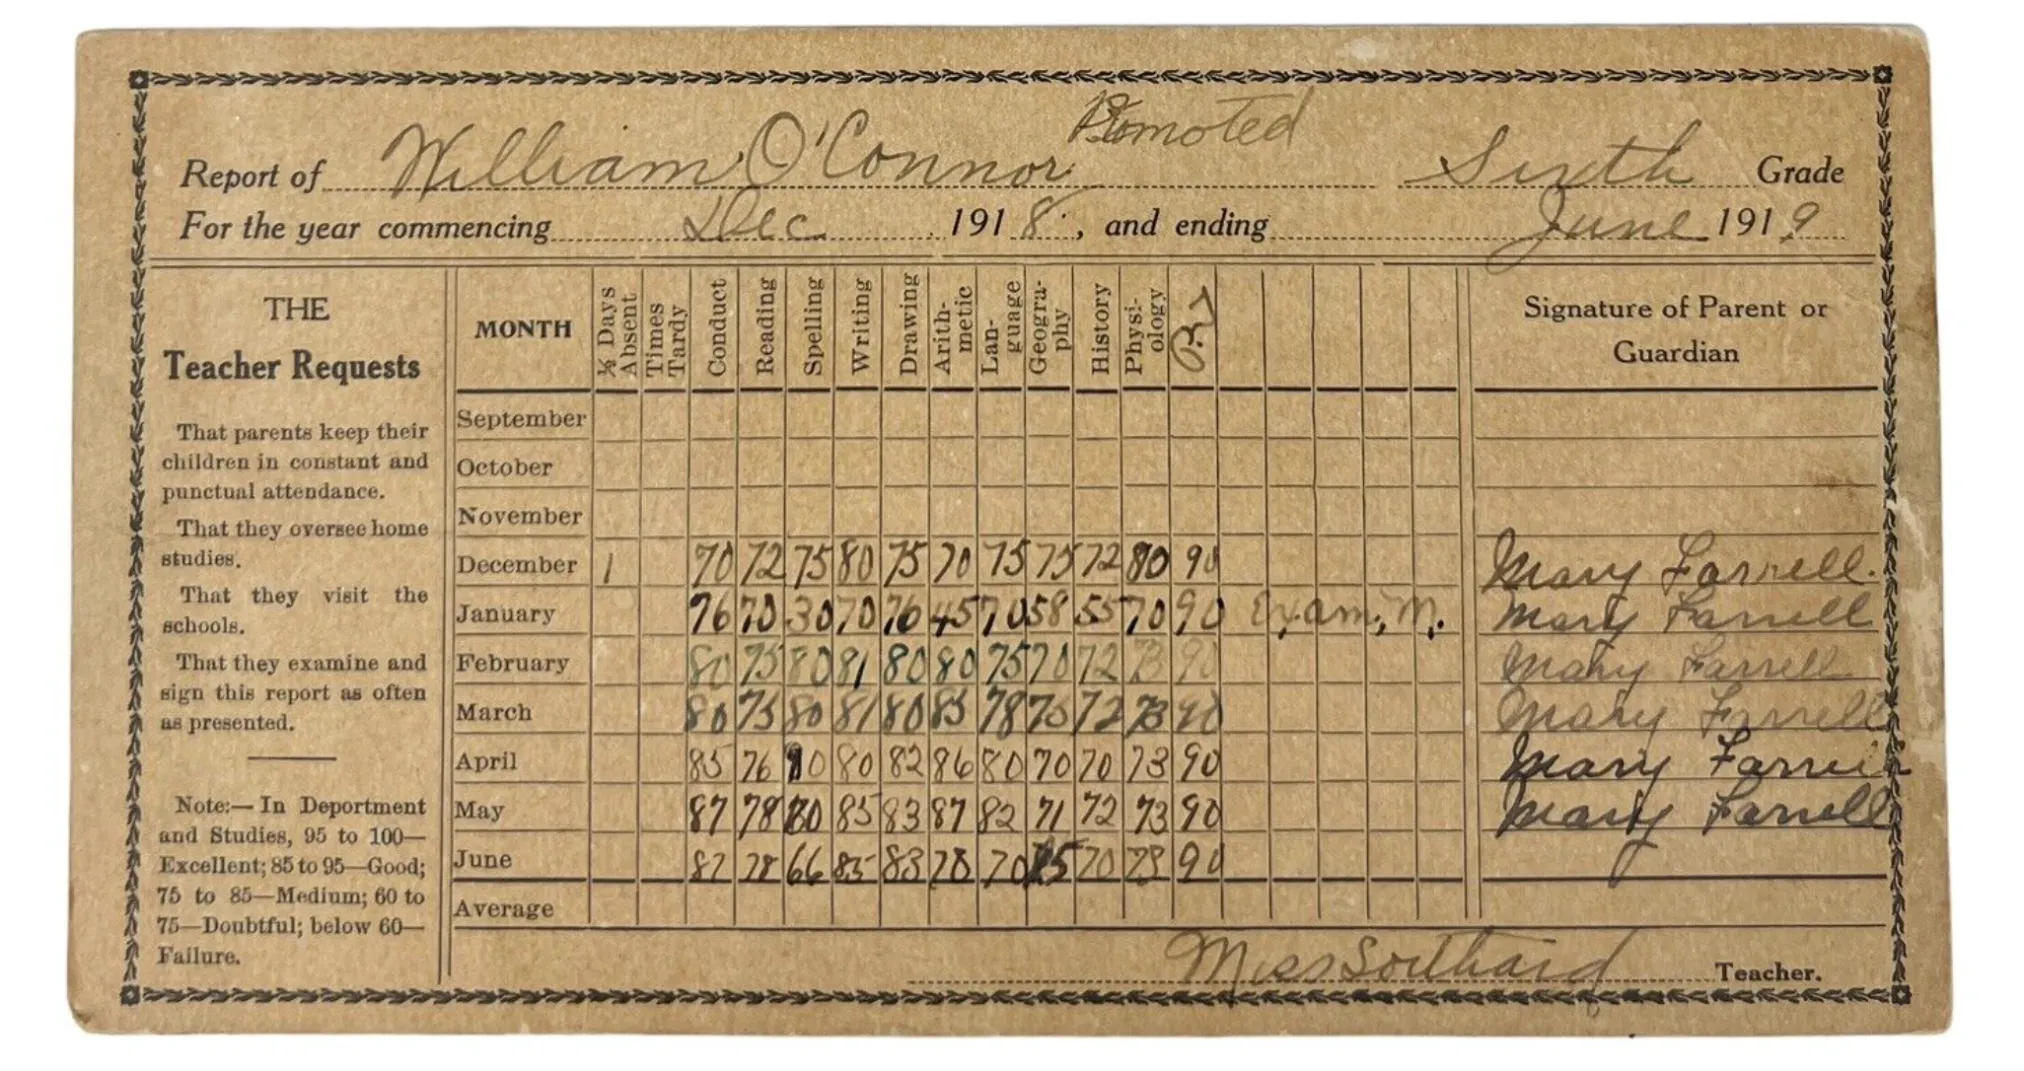 Promoted
Report of William O'Connor Sixth Grade
For the year commencing Dec 1918, and ending June 1919
THE
Teacher Requests
That parents keep their
children in constant and
punctual attendance.
That they oversee home
studies.
That they visit the
schools.
That they examine and
sign this report as often
as presented.
Note:— In Deportment
and Studies, 95 to 100—
Excellent; 85 to 95—Good;
75 to 85—Medium; 60 to
75—Doubtful; below 60—
Failure.
MONTH ½ Days Absent Times Tardy Conduct Reading Spelling Writing Drawing Arith-metic Lan-guage Geogra-phy History Physi-ology Signature of Parent or Guardian
September
October
November
December 1 70 72 75 80 75 70 75 75 72 80 90 Mary Farrell.
January 76 70 30 70 76 45 70 58 55 70 90 Exam, M. Mary Farrell
February 80 75 80 81 80 80 75 70 72 73 90 Mary Farrell
March 80 75 80 81 80 85 78 75 72 73 90 Mary Farrell
April 85 76 80 82 86 80 70 70 73 90 Mary Farrell
May 87 78 85 83 87 82 71 72 73 90 Mary Farrell
June 87 78 66 85 83 78 70 70 73 90
Average
Miss Southard Teacher.